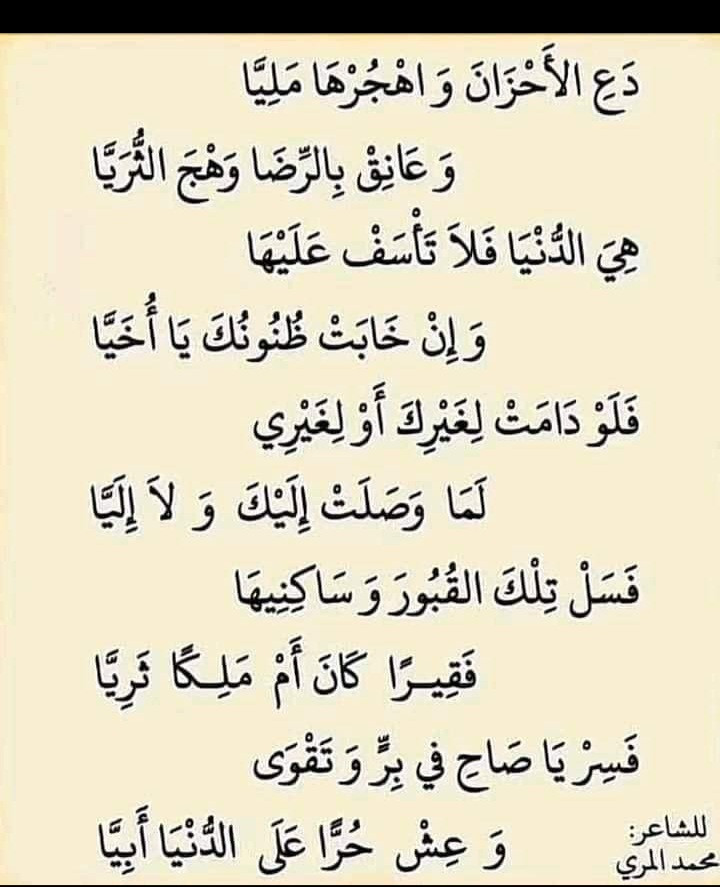 دَعِ الأَحْزَانَ وَ اهْجُرْهَا مَلِيًّا
وَ عَانِقْ بِالرِّضَا وَهْجَ الثُّرَيَّا
هِيَ الدُّنْيَا فَلاَ تَأْسَفْ عَلَيْهَا
وَ إِنْ خَابَتْ ظُنُونُكَ يَا أُخَيَّا
فَلَوْ دَامَتْ لِغَيْرِكَ أَوْ لِغَيْرِي
لَمَا وَصَلَتْ إِلَيْكَ وَ لاَ إِلَيَّا
فَسَلْ تِلْكَ القُبُورَ وَ سَاكِنِيهَا
فَقِيـرًا كَانَ أَمْ مَلِـكًا ثَرِيَّا
فَسِرْ يَا صَاحِ فِي بِرٍّ وَ تَقْوَى
وَ عِشْ حُرًّا عَلَى الدُّنْيَا أَبِيَّا
للشاعر:
محمد المري